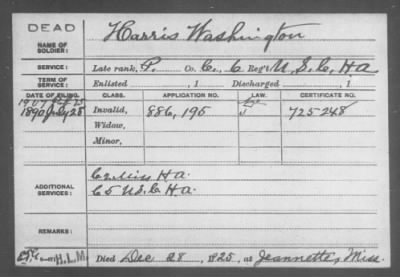 DEAD
NAME OF SOLDIER:
Harris Washington
SERVICE:
Late rank, P. Co. C., 6 Reg't U.S.C. H A
TERM OF SERVICE:
Enlisted , 1 Discharged , 1
DATE OF FILING. CLASS. APPLICATION NO. LAW. CERTIFICATE NO.
1907
1890 July 28 Invalid, 886,195 725248
Widow,
Minor,
ADDITIONAL SERVICES:
C 2 Miss H A.
C 5 U S C H A.
REMARKS:
H.L.M. Died Dec 28, 1925, at Jeannette, Miss.